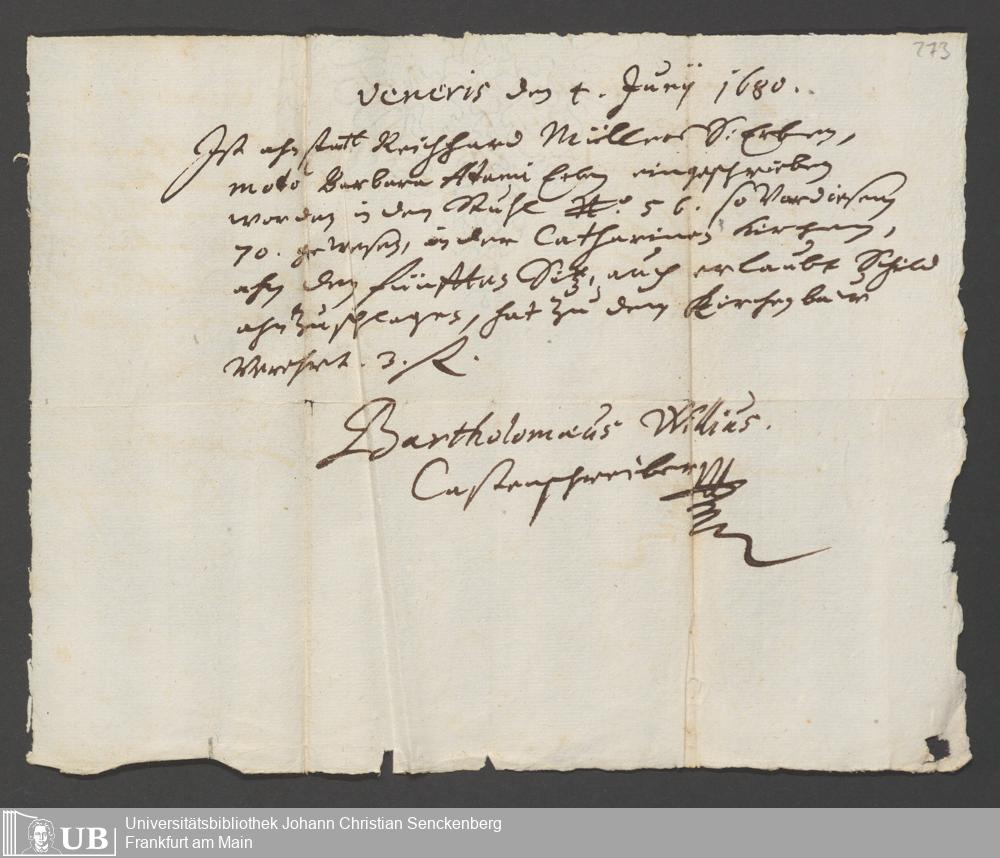 273
Veneris den 4. Junij 1680.
Ist ahn statt Reichhard Müllers S. Erben,
modo Barbara Adami Erben eingeschrieben
worden in den Stuhl No. 56. so Vor diesem
70. gewesen, in der Catharinen Kirchen,
ahn den fünfften Sitz, auch erlaubt Schild
ahnzuschlagen, hat zu dem Kirchenbauw
Verehrt. 3. fl.
Bartholomæus Willius.
Castenschreiber
UB
Universitätsbibliothek Johann Christian Senckenberg
Frankfurt am Main